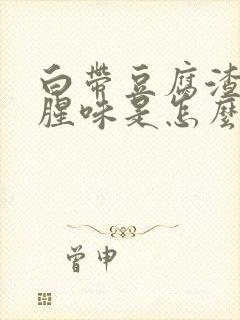 白帶豆腐渣
腥味是怎麼
曾申